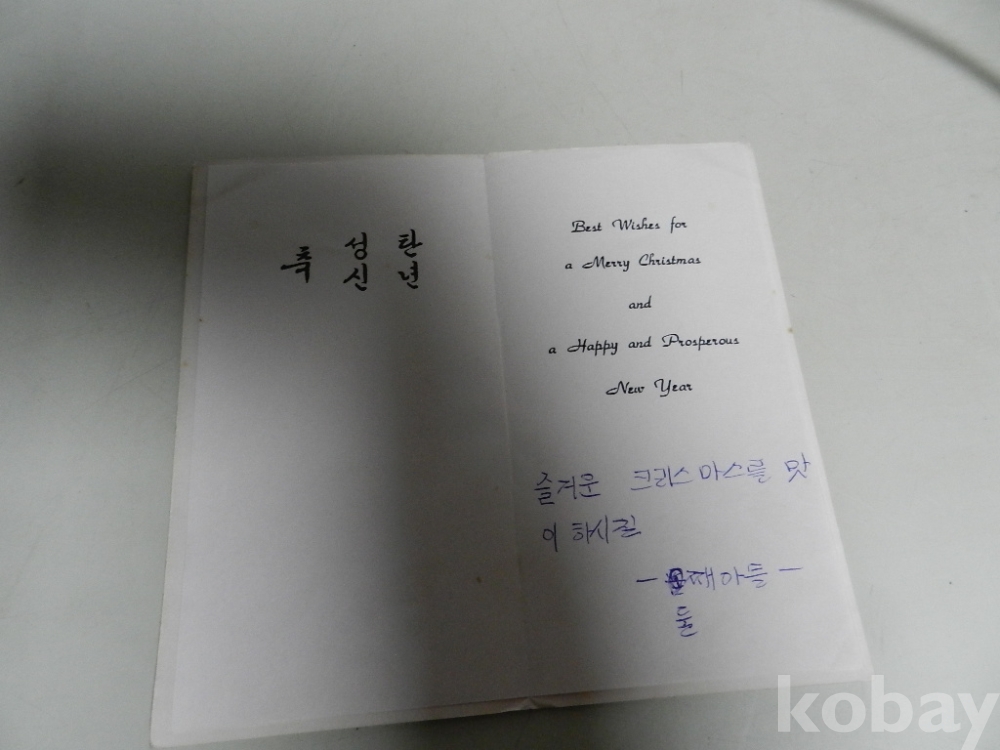 축 성 탄
신 년
Best Wishes for
a Merry Christmas
and
a Happy and Prosperous
New Year
즐거운 크리스마스를 맛
이 하시길
- 째아들 -
둘
kobay